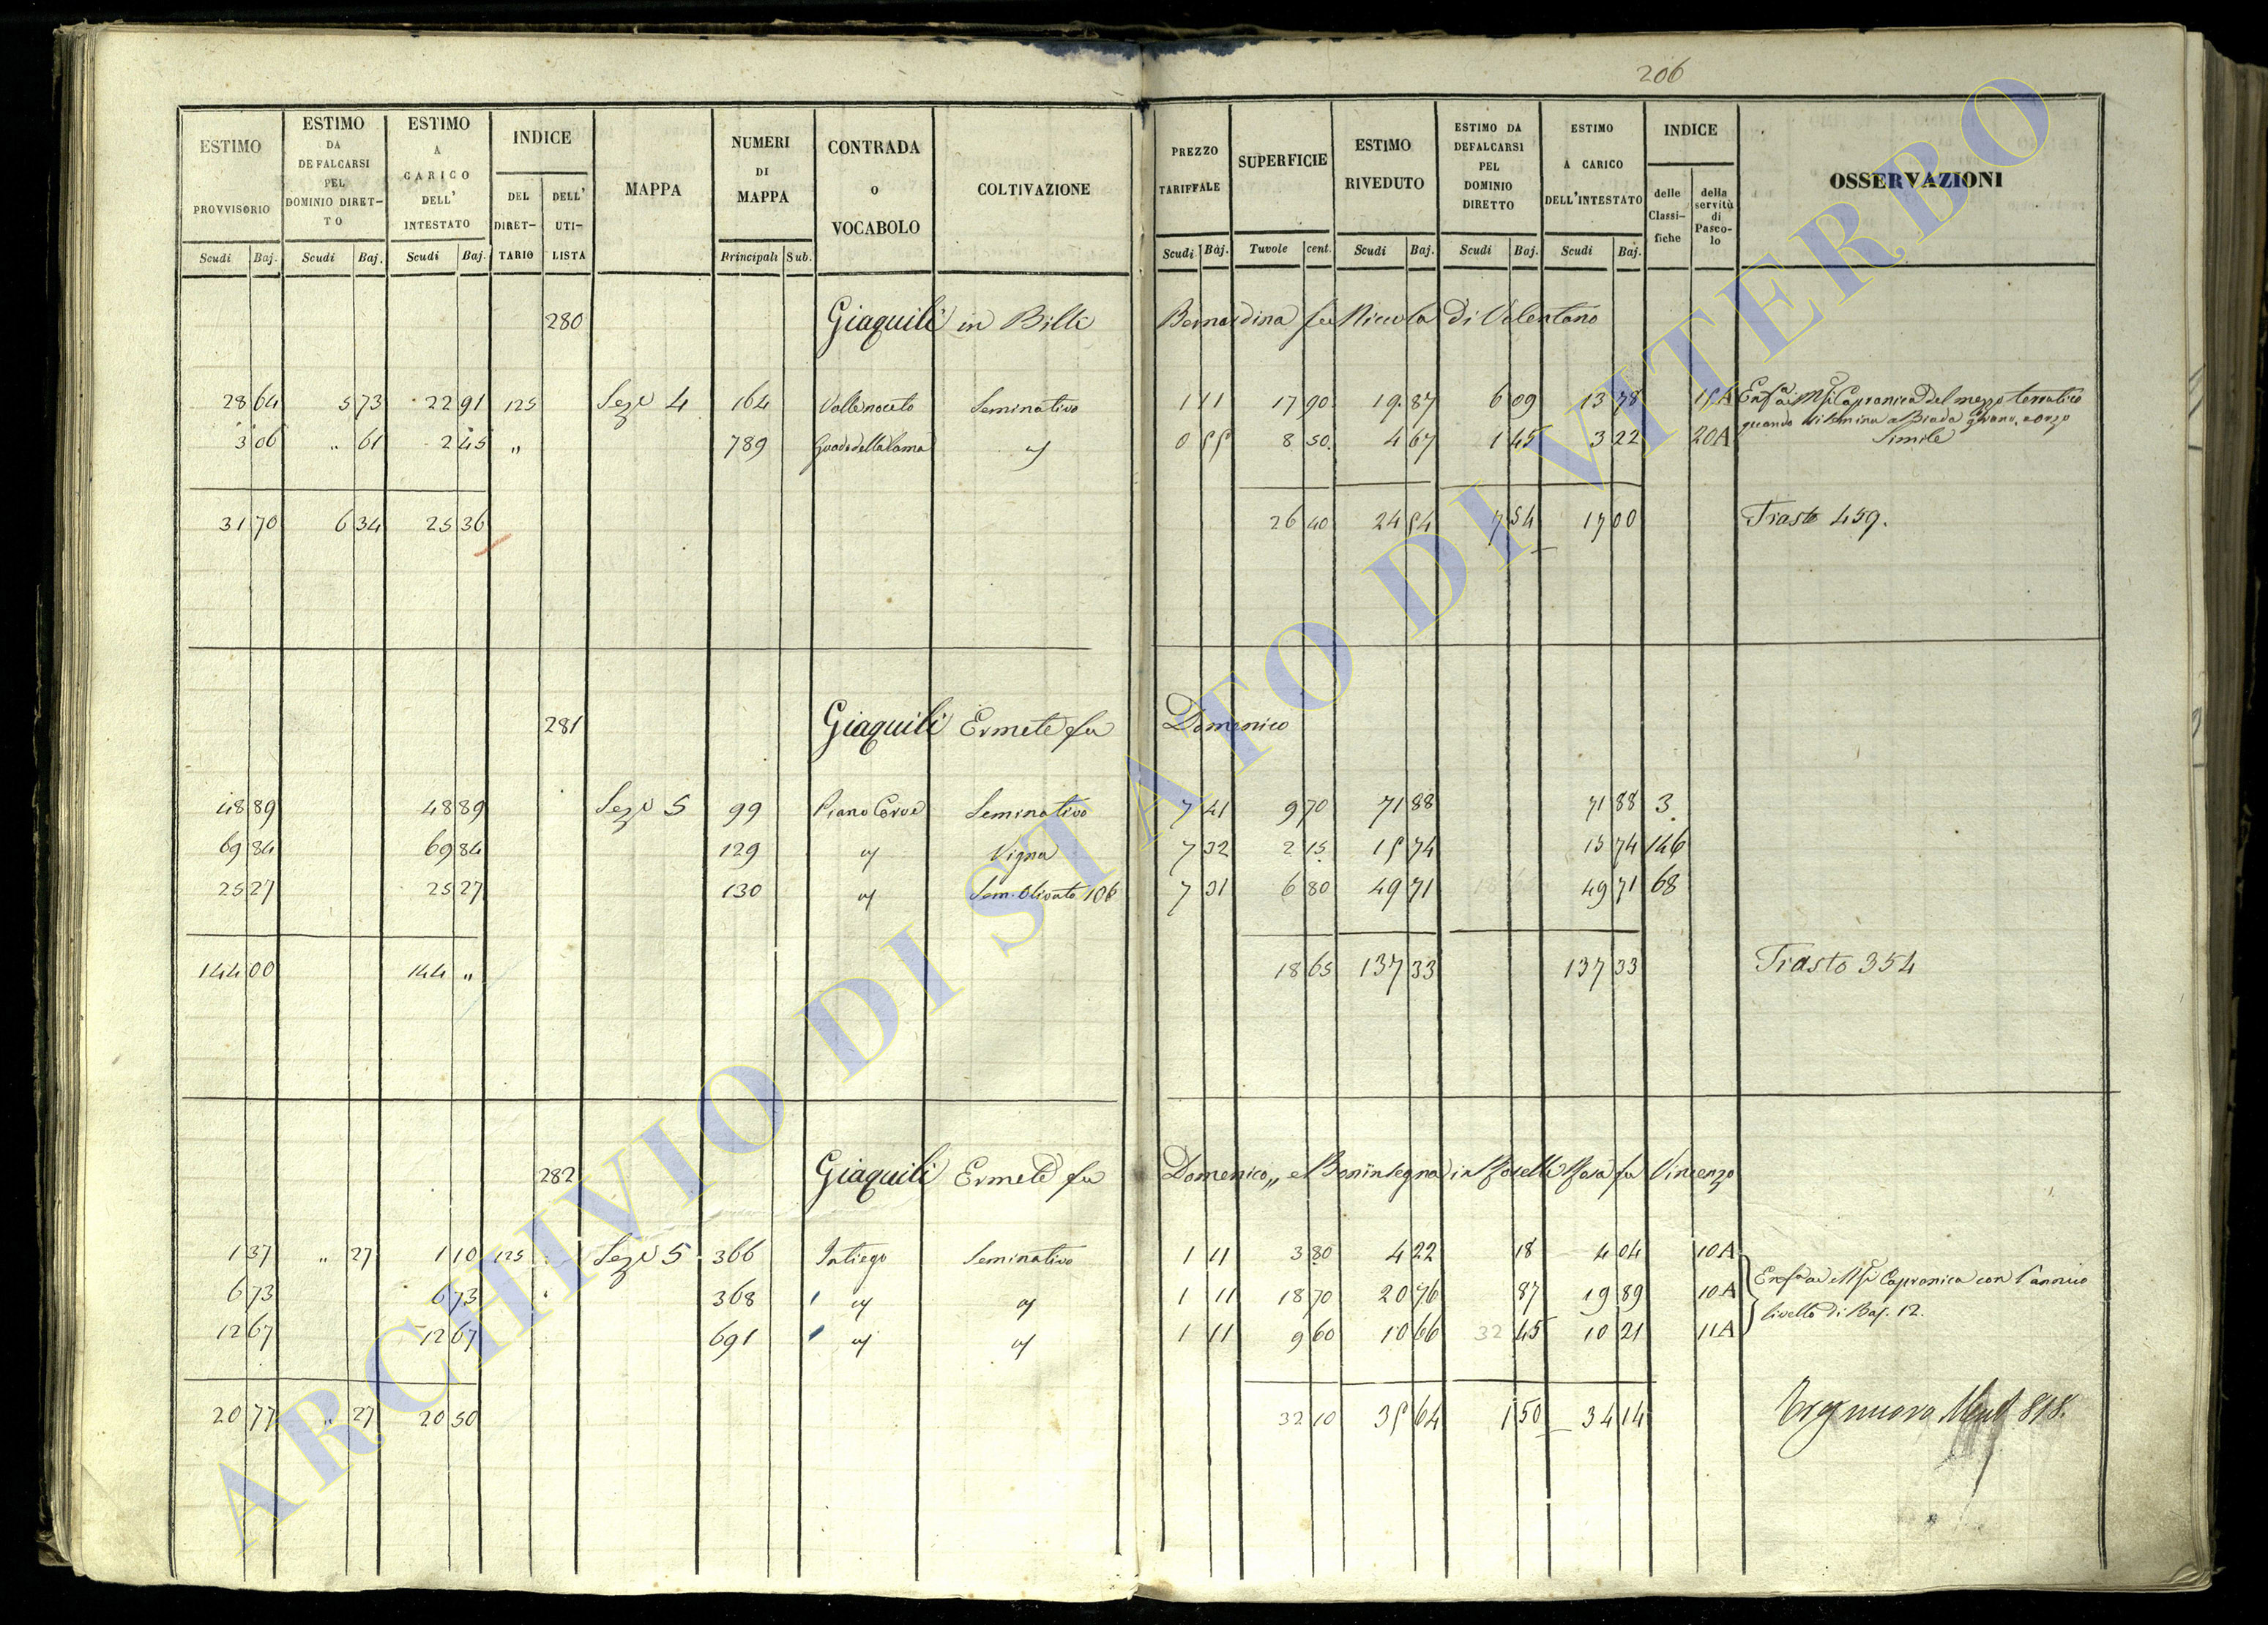 206
ESTIMO PROVVISORIO | ESTIMO DA DEFALCARSI PEL DOMINIO DIRET-TO | ESTIMO A CARICO DELL' INTESTATO | INDICE DEL DIRET-TARIO | DELL' UTI-LISTA | MAPPA | NUMERI DI MAPPA | CONTRADA O VOCABOLO | COLTIVAZIONE | PREZZO TARIFFALE | SUPERFICIE | ESTIMO RIVEDUTO | ESTIMO DA DEFALCARSI PEL DOMINIO DIRETTO | ESTIMO A CARICO DELL'INTESTATO | INDICE delle Classi-fiche | della servitù di Pasco-lo | OSSERVAZIONI
Scudi Baj. | Scudi Baj. | Scudi Baj. | Principali Sub. | Scudi Baj. | Tavole cent. | Scudi Baj. | Scudi Baj. | Scudi Baj.
280 Giaquili in Billi Bernardina fu Niccola di Valentano
28 64 | 5 73 | 22 91 | 125 | Sez. 4 | 164 | Vallenoceto | Seminativo | 1 11 | 17 90 | 19 87 | 6 09 | 13 78 | 15A | Enf. a Capranica del mezzo terratico
quando si semina a Biada grano, o orzo
3 06 | " 61 | 2 45 | " | 789 | Guado della lama | " | 0 55 | 8 50 | 4 67 | 1 45 | 3 22 | 20A | Simile
31 70 | 6 34 | 25 36 | 26 40 | 24 54 | 7 54 | 17 00 | Trasto 459.
281 Giaquili Ermete fu Domenico
48 89 | 48 89 | Sez. 5 | 99 | Piano | Seminativo | 7 41 | 9 70 | 71 88 | 71 88 | 3
69 84 | 69 84 | 129 | " | Vigna | 7 32 | 2 15 | 15 74 | 15 74 | 146
25 27 | 25 27 | 130 | " | Sem. Olivato 106 | 7 31 | 6 80 | 49 71 | 49 71 | 68
144 00 | 144 " | 18 65 | 137 33 | 137 33 | Trasto 354
282 Giaquili Ermete fu Domenico,, e Boninsegna in Rosa fu Vincenzo
1 37 | " 27 | 1 10 | 125 | Sez. 5 | 366 | Intiego | Seminativo | 1 11 | 3 80 | 4 22 | 18 | 4 04 | 10A
6 73 | 6 73 | 368 | " | " | 1 11 | 18 70 | 20 76 | 87 | 19 89 | 10A | Enf. a Capranica con l'annuo
12 67 | 12 67 | 691 | " | " | 1 11 | 9 60 | 10 66 | 32 45 | 10 21 | 11A | livello di Baj. 12.
20 77 | " 27 | 20 50 | 32 10 | 35 64 | 1 50 | 34 14 | nuova 818.
ARCHIVIO DI STATO DI VITERBO